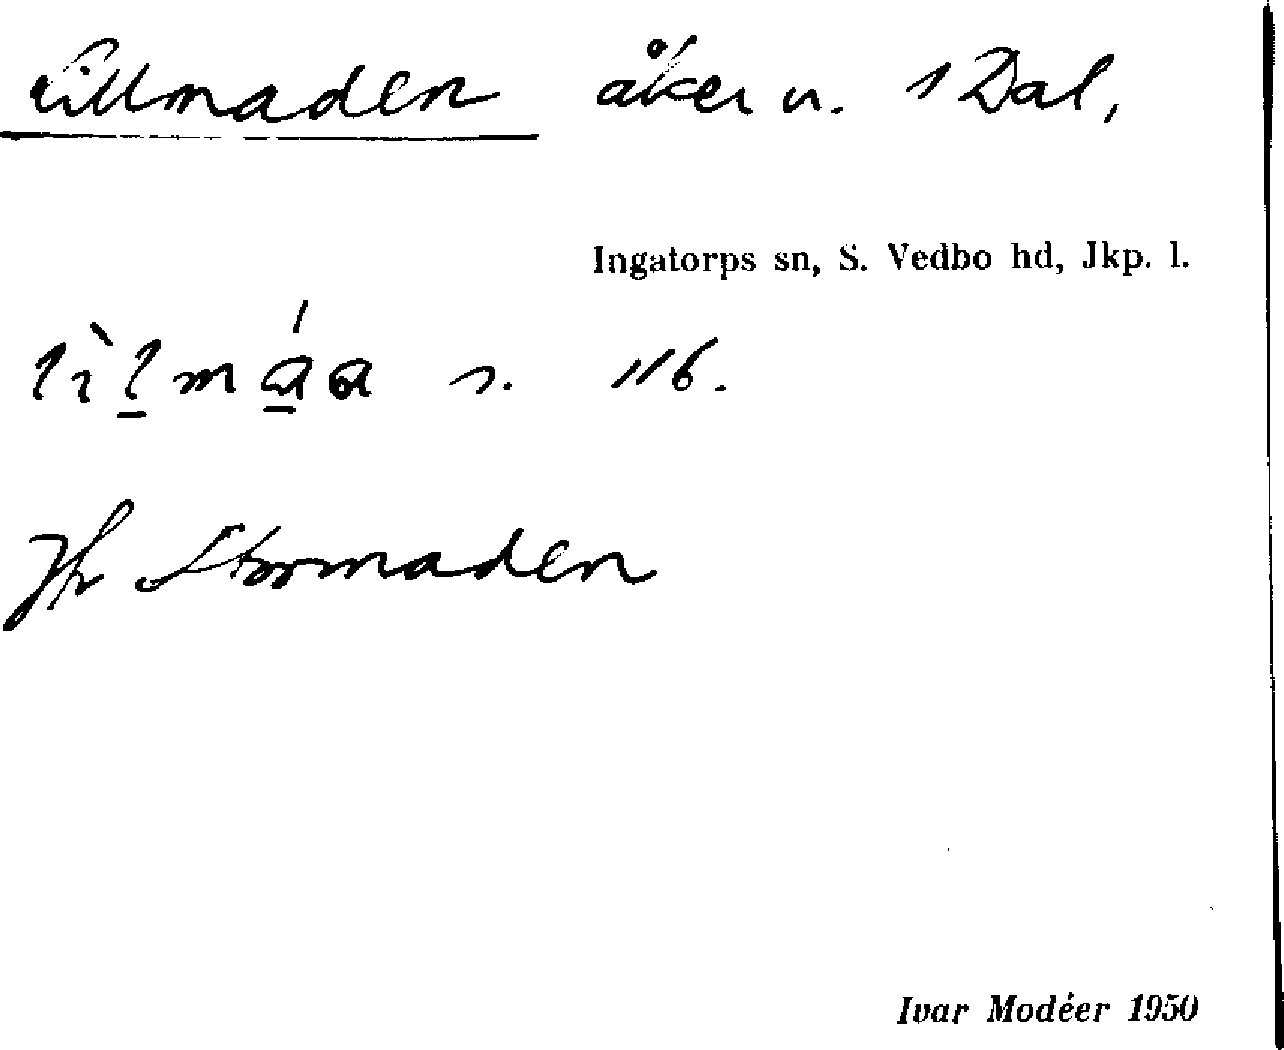 Lillmaden åker u. 1 Dal,
Ingatorps sn, S. Vedbo hd, Jkp. l.
s. 116.
Jfr Stormaden
Ivar Modéer 1950